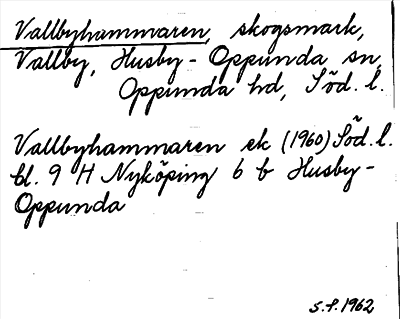 Vallbyhammaren, skogsmark,
Vallby, Husby-Oppunda sn,
Oppunda hd, Söd. l.
Vallbyhammaren ek (1960) Söd. l.
bl. 9 H Nyköping 6 b Husby-
Oppunda
S.P. 1962